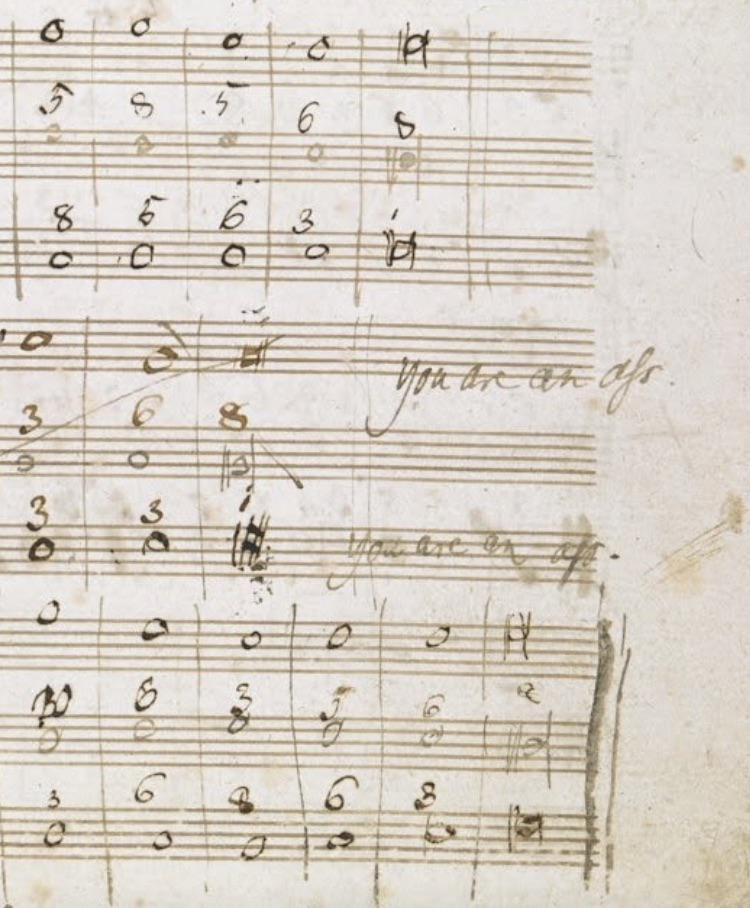 5 8 5 6 8
8 5 6 3 1
you are an aſs.
3 6 8
3 3 1
you are an ass.
10 8 3 5 6
3 6 8 6 8